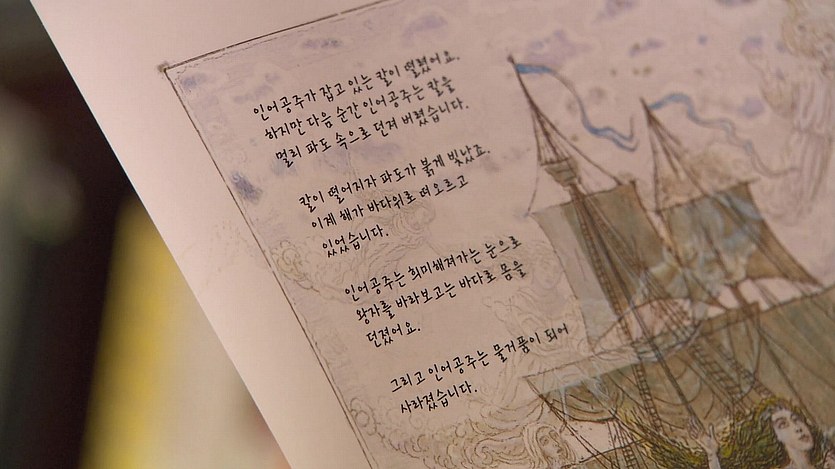 인어공주가 잡고 있는 칼이 떨렸어요.
하지만 다음 순간 인어공주는 칼을
멀리 파도 속으로 던져 버렸습니다.
칼이 떨어지자 파도가 붉게 빛났죠.
이제 해가 바다위로 떠오르고
있었습니다.
인어공주는 희미해져가는 눈으로
왕자를 바라보고는 바다로 몸을
던졌어요.
그리고 인어공주는 물거품이 되어
사라졌습니다.